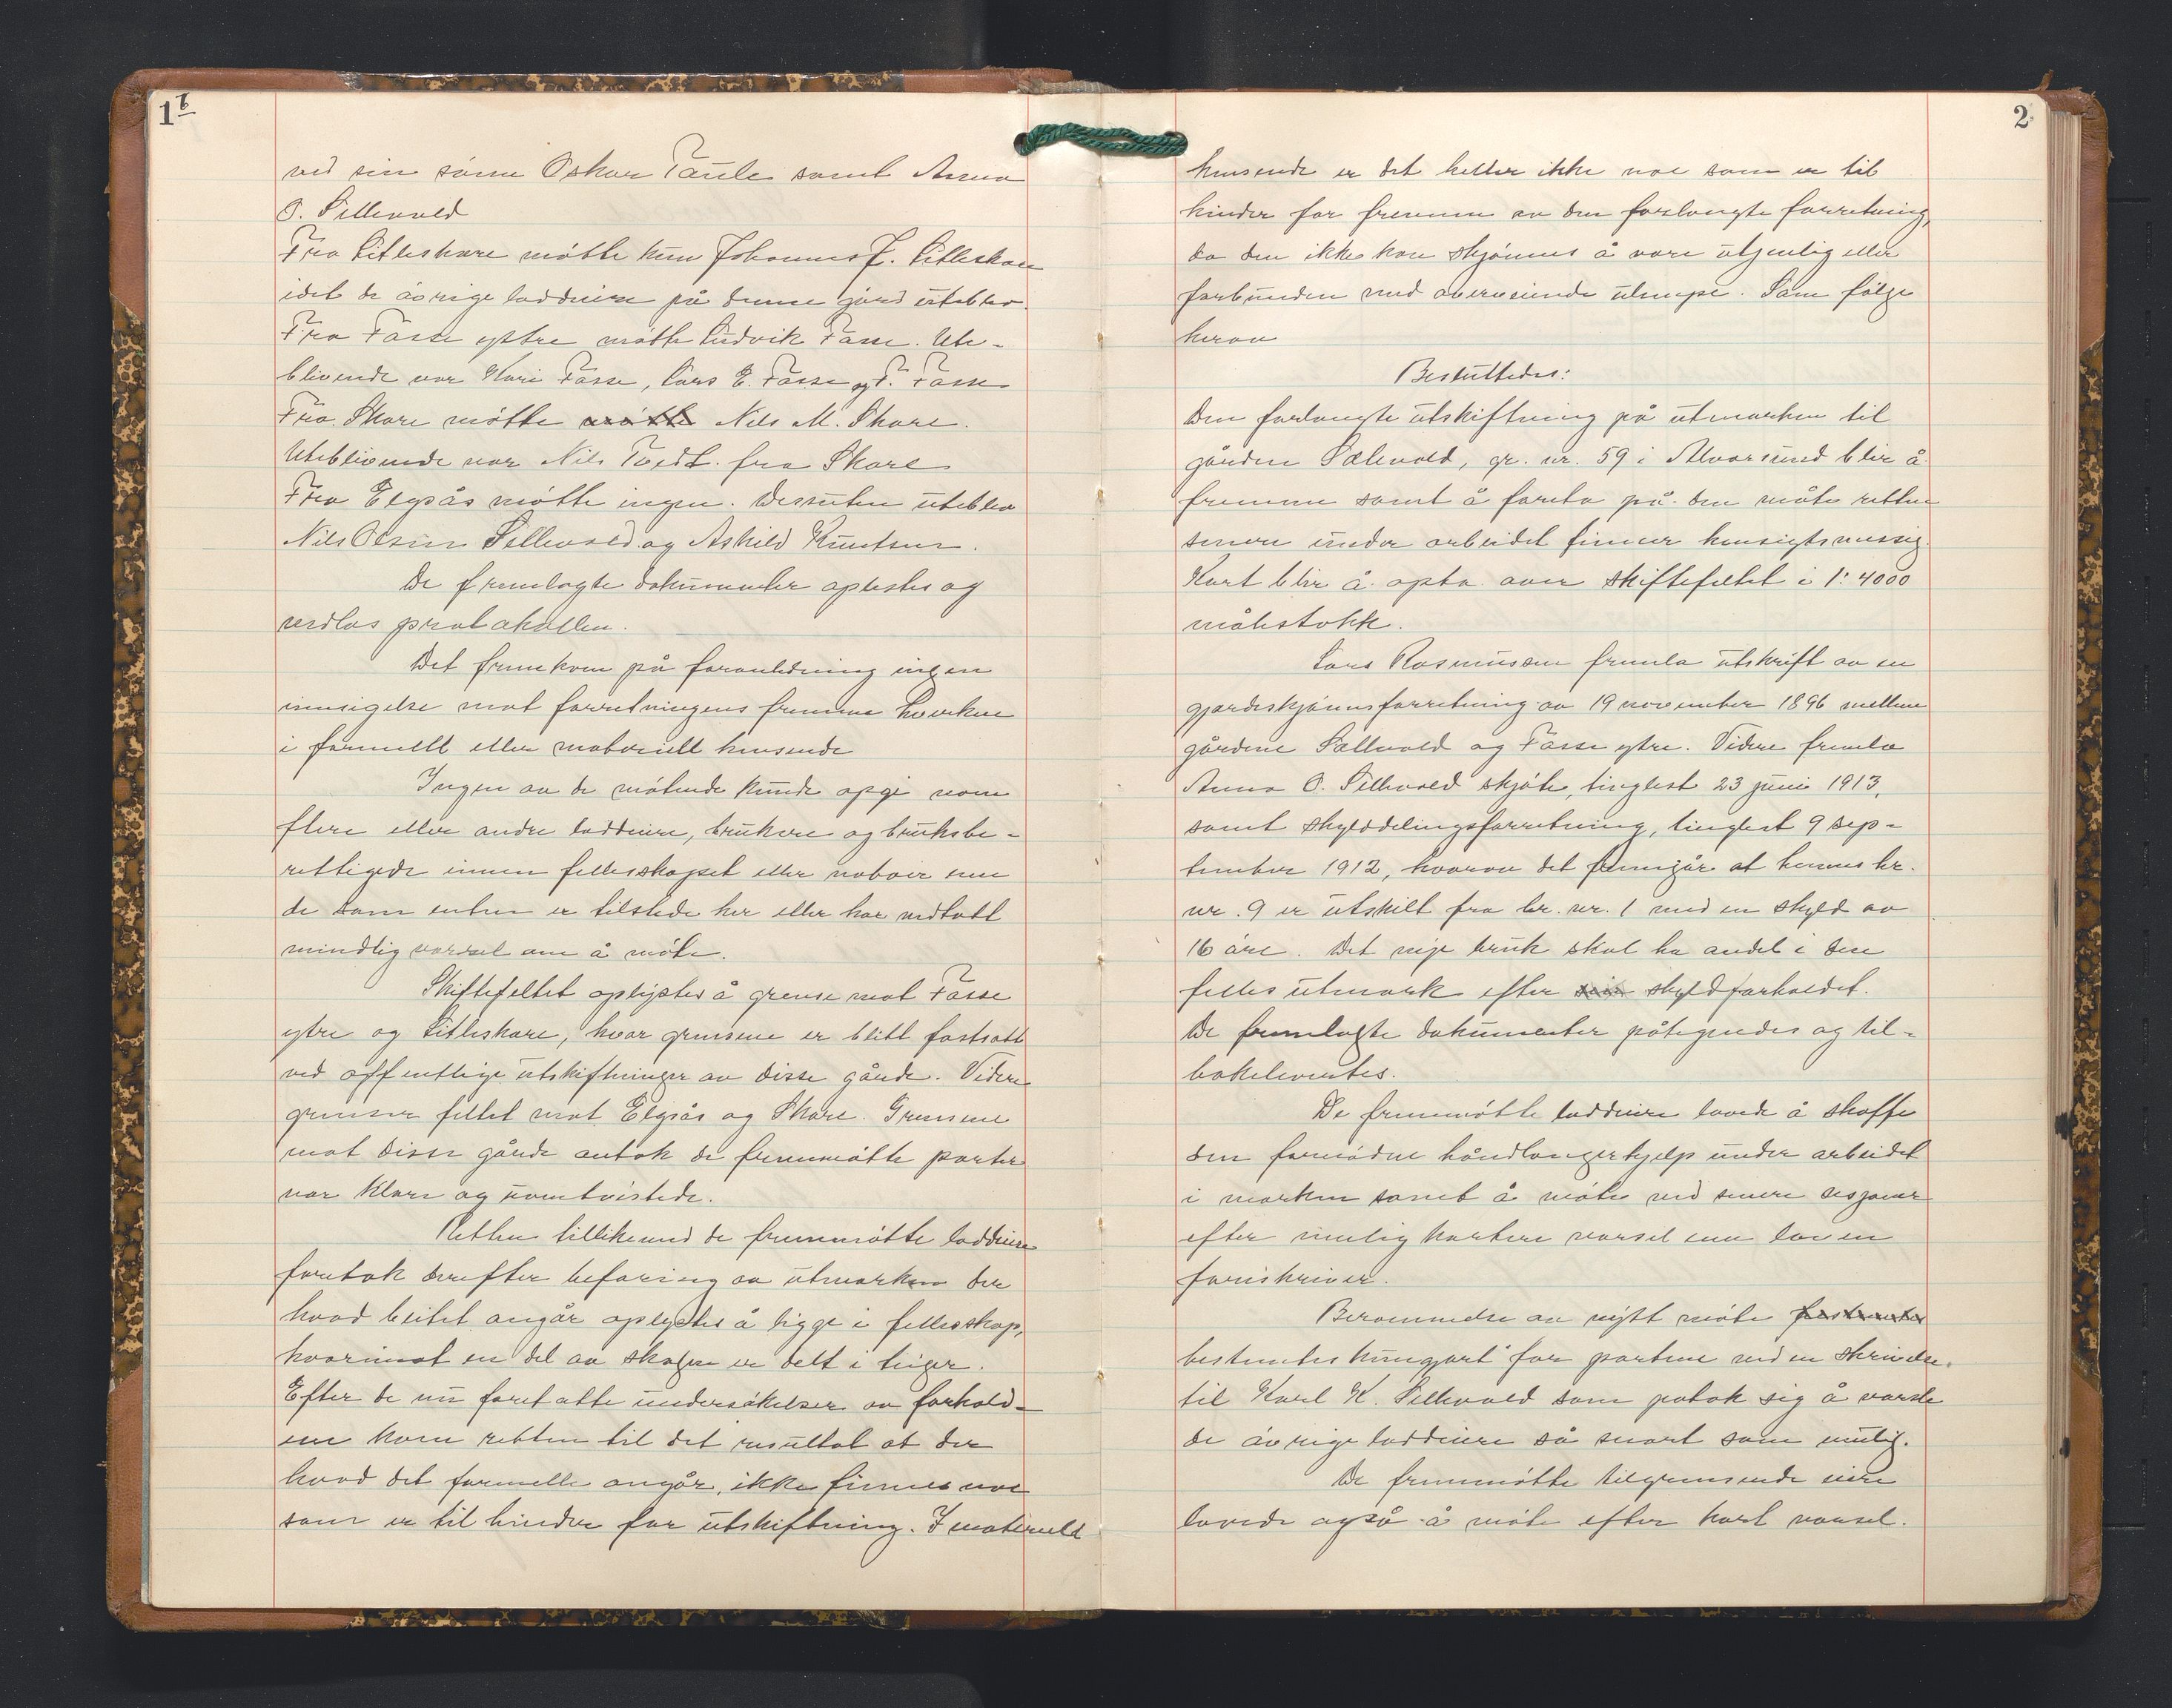 1b
ved sin sønn Oskar Taule samt Anna
O. Sellevold
Fra Litleskare møtte kun Johannes J. Litleskare
idet de øvrige loddeiere på denne gård uteblev.
Fra Fosse ystre møtte Ludvik Fosse. Ute-
blivende var Kari Fosse, Lars E. Fosse og T. Fosse
Fra Skare møtte møtte Nils M. Skare.
Uteblivende var Nils Tvedt fra Skare
Fra Elgsås møtte ingen. Dessuten uteblev
Nils Olsen Sellevold og Askild Knutsen.
De fremlagte dokumenter oplestes og
vedlas protokollen.
Det fremkom på foranledning ingen
innsigelse mot forretningens fremme hverken
i formell eller materiell henseende
Ingen av de møtende kunde opgi noen
flere eller andre loddeiere, brukere og bruksbe-
rettigede innen fellesskapet eller naboer enn
de som enten er tilstede her eller har vedtatt
mindlig varsel om å møte.
Skiftefeltet oplystes å grense mot Fosse
ytre og Litleskare, hvor grensene er blitt fastsatt
ved offentlige utskiftninger av disse gårde. Videre
grenser feltet mot Elgsås og Skare. Grensene
mot disse gårde antok de fremmøtte parter
var klare og uomtvistede.
Retten tillikemed de fremmøtte loddeiere
foretok derefter befaring av utmarken der
hvad beitet angår oplystes å ligge i fellesskap,
hvorimot en del av skogen er delt i teiger.
Efter de nu foretatte undersøkelser av forhold-
ene kom retten til det resultat at der
hvad det formelle angår, ikke finnes noe
som er til hinder for utskiftning. I materiell
2
henseende er det heller ikke noe som er til
hinder for fremme av den forlangte forretning,
da den ikke kan skjønnes å være utjenlig eller
forbunden med overveiende ulempe. Som følge
herav
Besluttedes:
Den forlangte utskiftning på utmarken til
gården Sælevold, gr. nr. 59 i Alversund blir å
fremme samt å foreta på den måte retten
senere under arbeidet finner hensigtsmessig.
Kart blir å opta over skiftefeltet i 1:4000
målestokk.
Lars Rasmussen fremla utskrift av en
gjerdeskjønnsforretning av 19 november 1896 mellem
gårdene Sellevold og Fosse ytre. Videre fremla
Anna O. Sellevold skjøte, tinglest 23 juni 1913,
samt skylddelingsforretning, tinglest 9 sep-
tember 1912, hvorav det fremgår at hennes br.
nr. 9 er utskilt fra br. nr. 1 med en skyld av
16 øre. Det nye bruk skal ha andel i den
felles utmark efter sin skyldforholdet.
De fremlagte dokumenter påtegnedes og til-
bakelevertes.
De fremmøtte loddeiere lovede å skaffe
den fornødne håndlangerhjelp under arbeidet
i marken samt å møte ved senere sesjoner
efter mulig kortere varsel enn loven
foreskriver.
Berammelse av nytt møte
bestemtes kungjort for partene ved en skrivelse
til Karl K. Sellevold som påtok sig å varsle
de øvrige loddeiere så snart som mulig.
De fremmøtte tilgrensende eiere
lovede også å møte efter kort varsel.